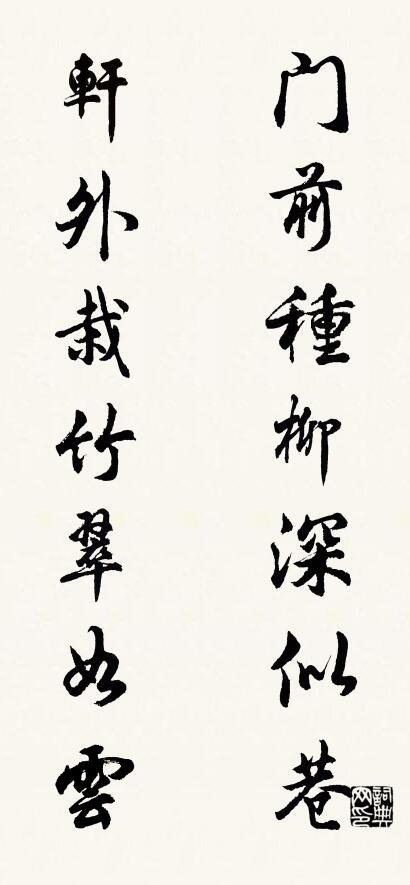 门前種柳深似巷
軒外栽竹翠如雲
詞典網印